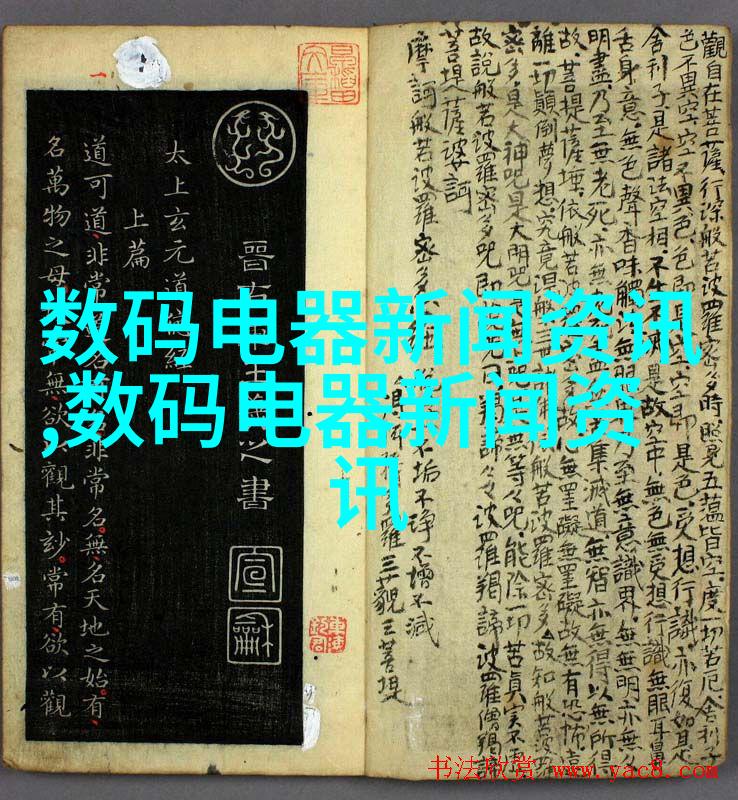 数码电器新闻资讯
,数码电器新闻资
讯
觀自在菩薩行深般若波羅密多時照見五蘊皆空度一切苦厄舍利子
色不異空空不異色色即是空空即是色受想行識亦復如是
舍利子是諸法空相不生不是故空中無色無受想行識無眼耳鼻
舌身意無色聲香味觸無乃至無意識界無無明亦無
明盡乃至無老死亦無集滅道無智亦無得以無所得
故菩提薩埵依般若波多故無罣礙無罣礙故無有恐怖遠
離一切顛倒夢想究竟涅般若波羅密多故知般若波
密多是大神呪是大明呪是無等々呪能除一切苦真實不
故說般若波羅密多呪即曰揭諦々々波羅揭諦波羅僧揭諦
菩提薩婆訶
摩訶般若波羅密多
不垢不淨不增不減
多羅三藐三菩提
晋右之書
宣
龢
太上玄元道經
上篇
道可道非常名非常名無名天地之始有
名萬物之母無欲觀其玅常有欲以觀
书法欣赏 www.yac8.com